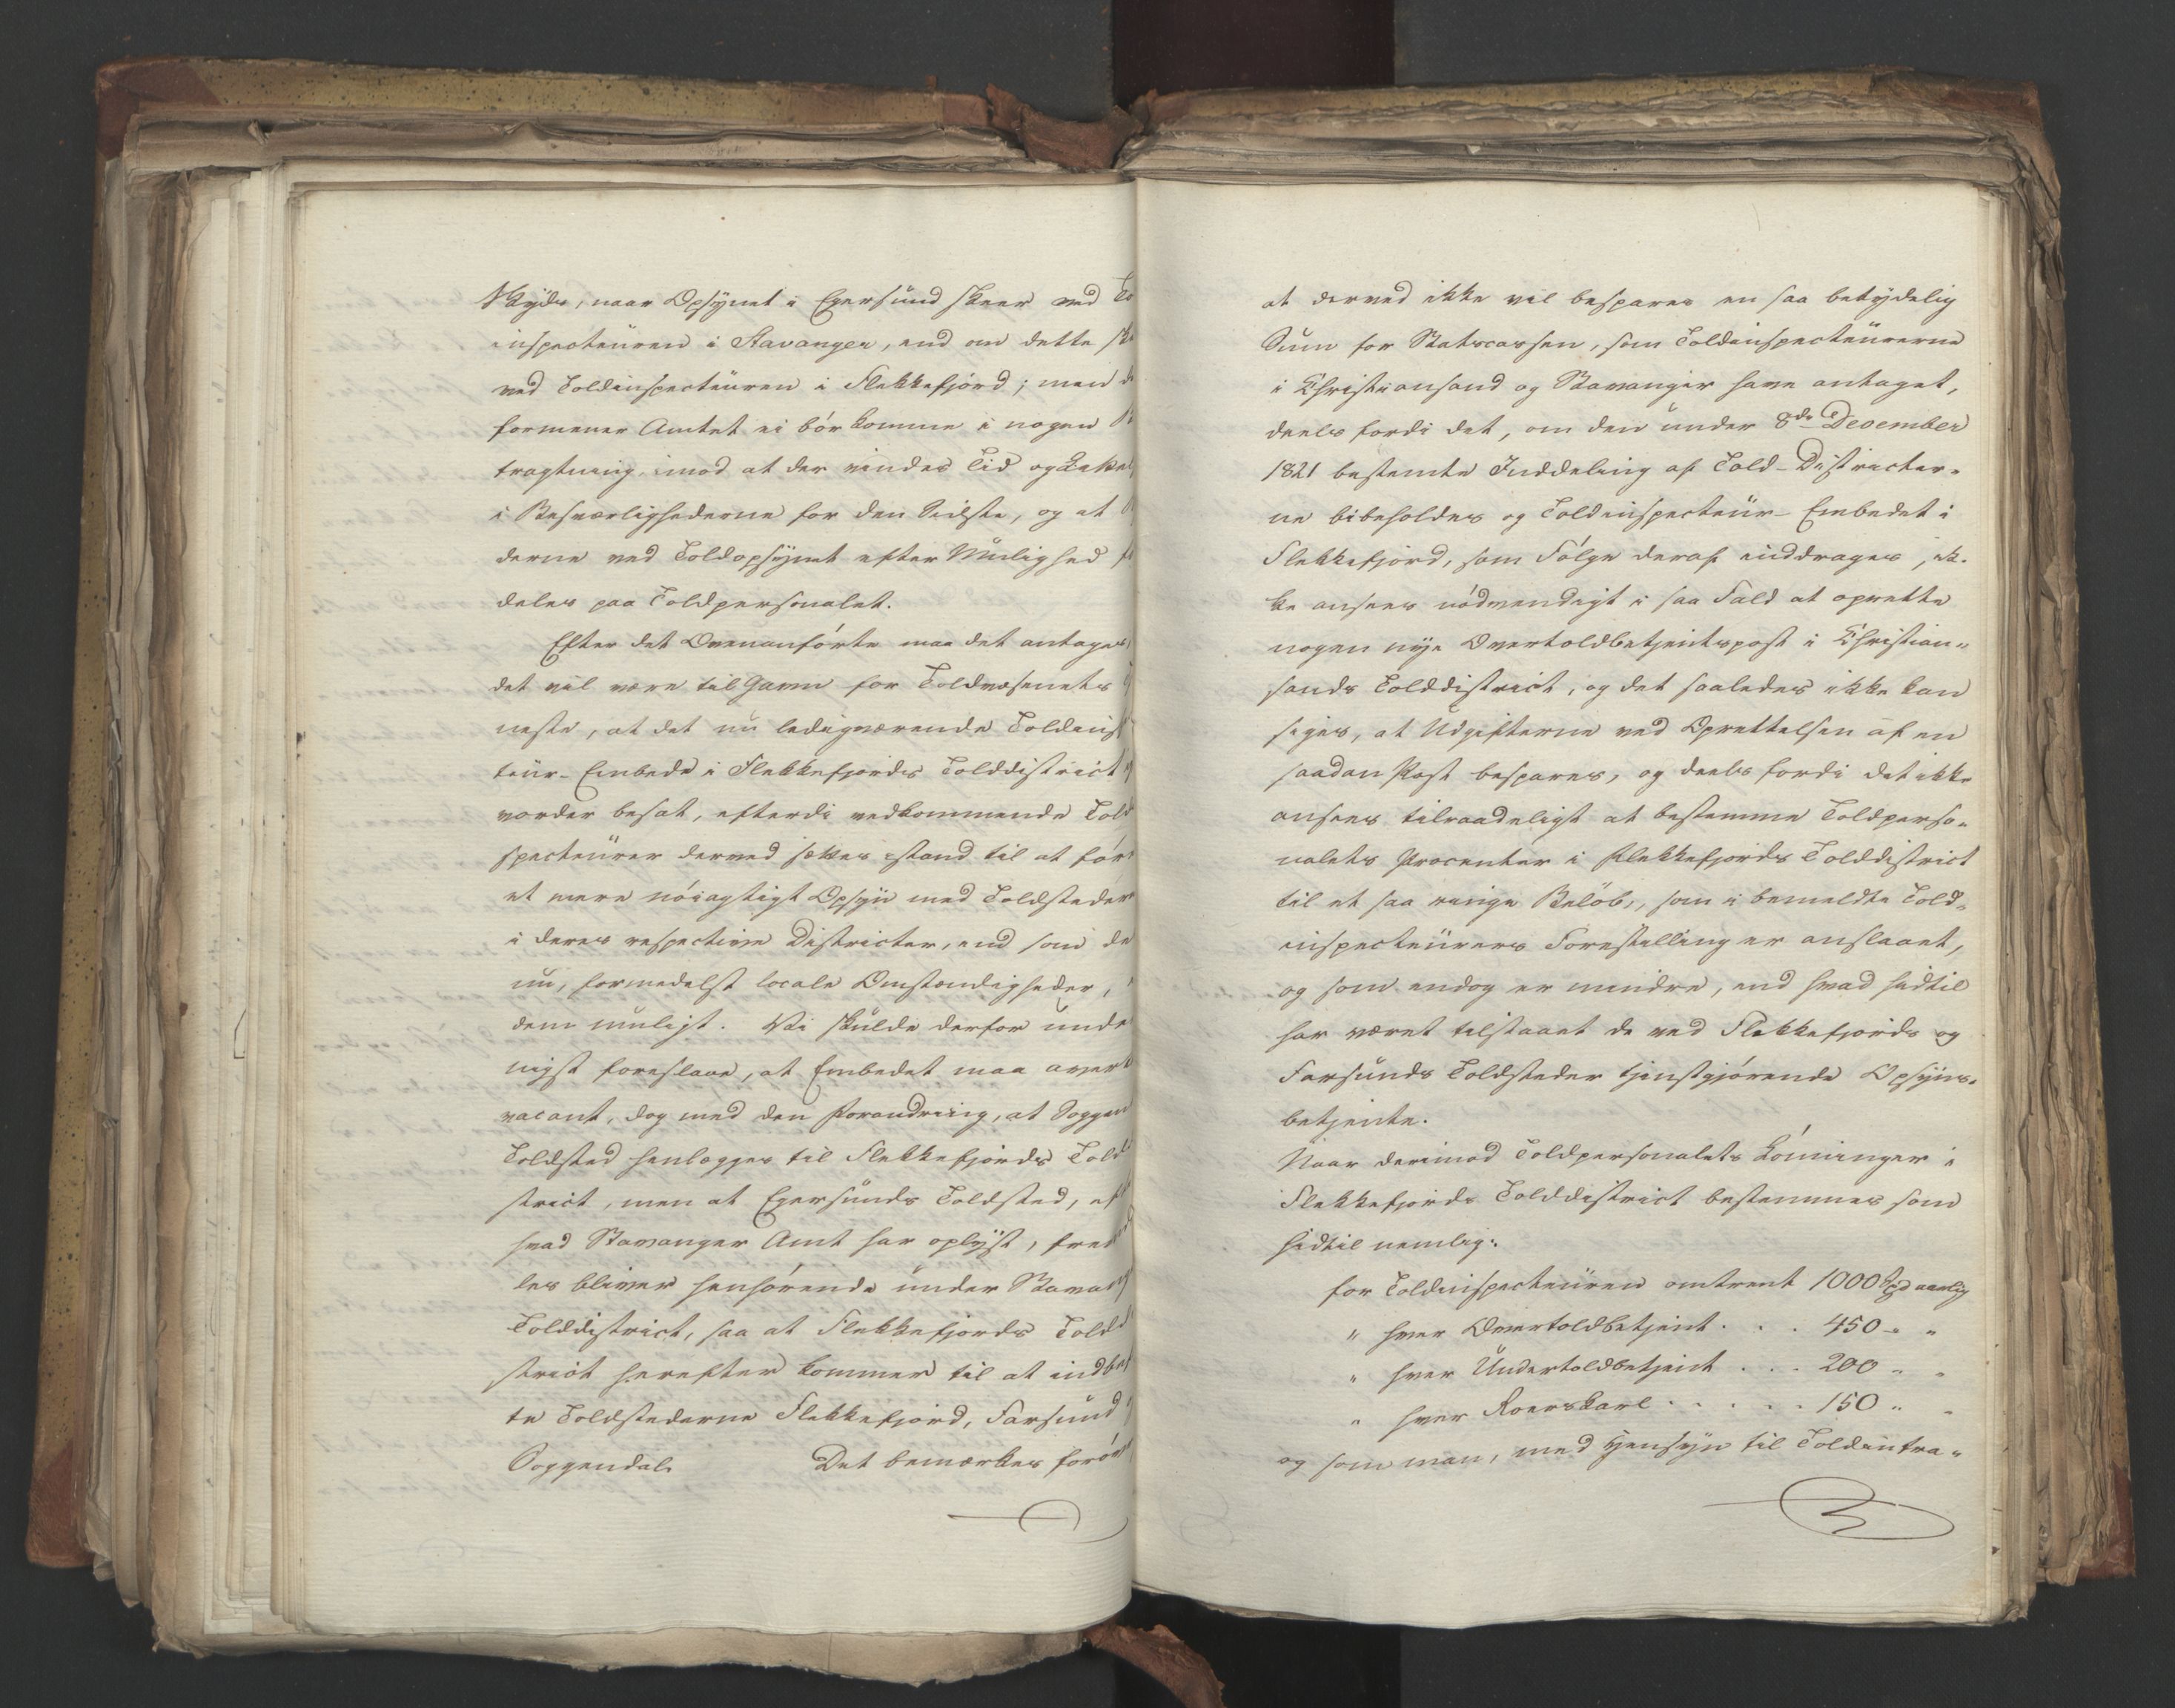 Skyds, naar Opsynet i Egersund skeer ved To
inspecteuren i Stavanger, end om dette ske
ved Toldinspecteuren i Flekkefjord; men d
formener Amtet ei bör komme i nogen B
tragtning imod at der vindes Tid og
i Besværlighederne for den Reiste, og at
derne ved Toldopsynet efter Mulighed f
deles paa Toldpersonalet.
Efter det Ovenanførte maa det antages,
det vil være til Gavn for Toldvæsenets
neste, at det nu ledigværende Toldinsp
teur-Embede i Flekkefjords Tolddistrict ei
vorder besat, efterdi vedkommende Told
specteurer derved sættes istand til at føre
et mere nöiagtigt Opsyn med Toldstedern
i deres respective Districter, end som de
nu, formedelst locale Omstændigheder, e
dem muligt. Vi skulde derfor unde
nigst foreslaae, at Embedet maa overt
vacant, dog med den Forandring, at Soggen
Toldsted henlægges til Flekkefjords Toldd
strict, men at Egersunds Toldsted, eft
hvad Stavanger Amt har oplyst, frem
les bliver henhörende under Stavang
Tolddistrict, saa at Flekkefjords Toldd
strict herefter kommer til at indbef
te Toldstederne Flekkefjord, Farsund o
Soggendal. Det bemærkes foröv
at derved ikke vil bespares en saa betydelig
Sum for Statscassen, som Toldinspecteurerne
i Christiansand og Stavanger have antaget,
deels fordi det, om den under 8de December
1821 bestemte Inddeling af Told-Districter-
ne bibeholdes og Toldinspecteur-Embedet i
Flekkefjord, som Fölge deraf inddrages, ik-
ke ansees nödvendigt i saa Fald at oprette
nogen nye Overtoldbetjentspost i Christian-
sands Tolddistrict, og det saaledes ikke kan
siges, at Udgifterne ved Oprettelsen af en
saadan Post bespares, og deels fordi det ikke
ansees tilraadeligt at bestemme Toldperso-
nalets Procenter i Flekkefjords Tolddistrict
til et saa ringe Belöb, som i bemeldte Told-
inspecteurers Forestilling er anslaaet,
og som endog er mindre, end hvad hidtil
har været tilstaaet de ved Flekkefjords og
Farsunds Toldsteder tjenstgjörende Opsyns-
betjente.
Naar derimod Toldpersonalets Lönninger i
Flekkefjords Tolddistrict bestemmes som
hidtil nemlig:
for Toldinspecteuren omtrent 1000 Spd aarlig
" hver Overtoldbetjent . . . 450 - "
" hver Undertoldbetjent . . . 200 - "
" hver Roerskarl . . . . . 150 " -
og som man, med Hensyn til Toldintra-